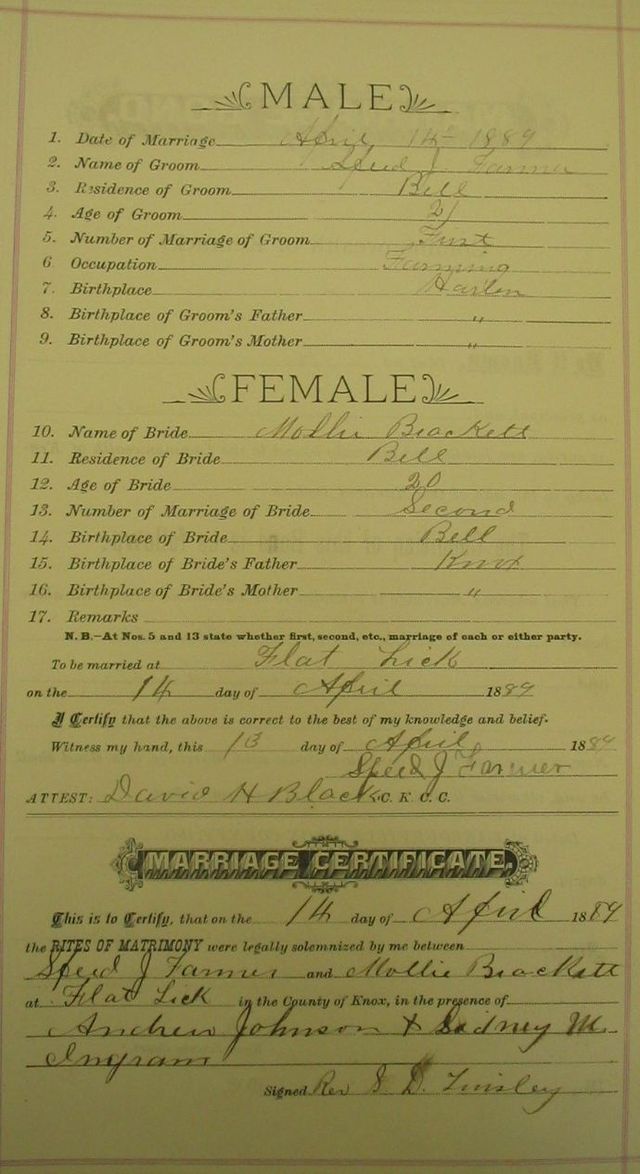 MALE
1. Date of Marriage April 14th 1889
2. Name of Groom Speed J Farmer
3. Residence of Groom Bell
4. Age of Groom 21
5. Number of Marriage of Groom First
6 Occupation Farming
7. Birthplace Harlan
8. Birthplace of Groom's Father "
9. Birthplace of Groom's Mother "
FEMALE
10. Name of Bride Mollie Brackett
11. Residence of Bride Bell
12. Age of Bride 20
13. Number of Marriage of Bride Second
14. Birthplace of Bride Bell
15. Birthplace of Bride's Father Knox
16. Birthplace of Bride's Mother "
17. Remarks
N. B.—At Nos. 5 and 13 state whether first, second, etc., marriage of each or either party.
To be married at Flat Lick
on the 14 day of April 1889
I Certify that the above is correct to the best of my knowledge and belief.
Witness my hand, this 13 day of April 1889
Speed J Farmer
ATTEST: David H Black C. K. C. C.
MARRIAGE CERTIFICATE.
This is to Certify, that on the 14 day of April 1889
the RITES OF MATRIMONY were legally solemnized by me between
Speed J Farmer and Mollie Brackett
at Flat Lick in the County of Knox, in the presence of
Andrew Johnson & Sidney M.
Ingram
Signed Rev D. Tinsley